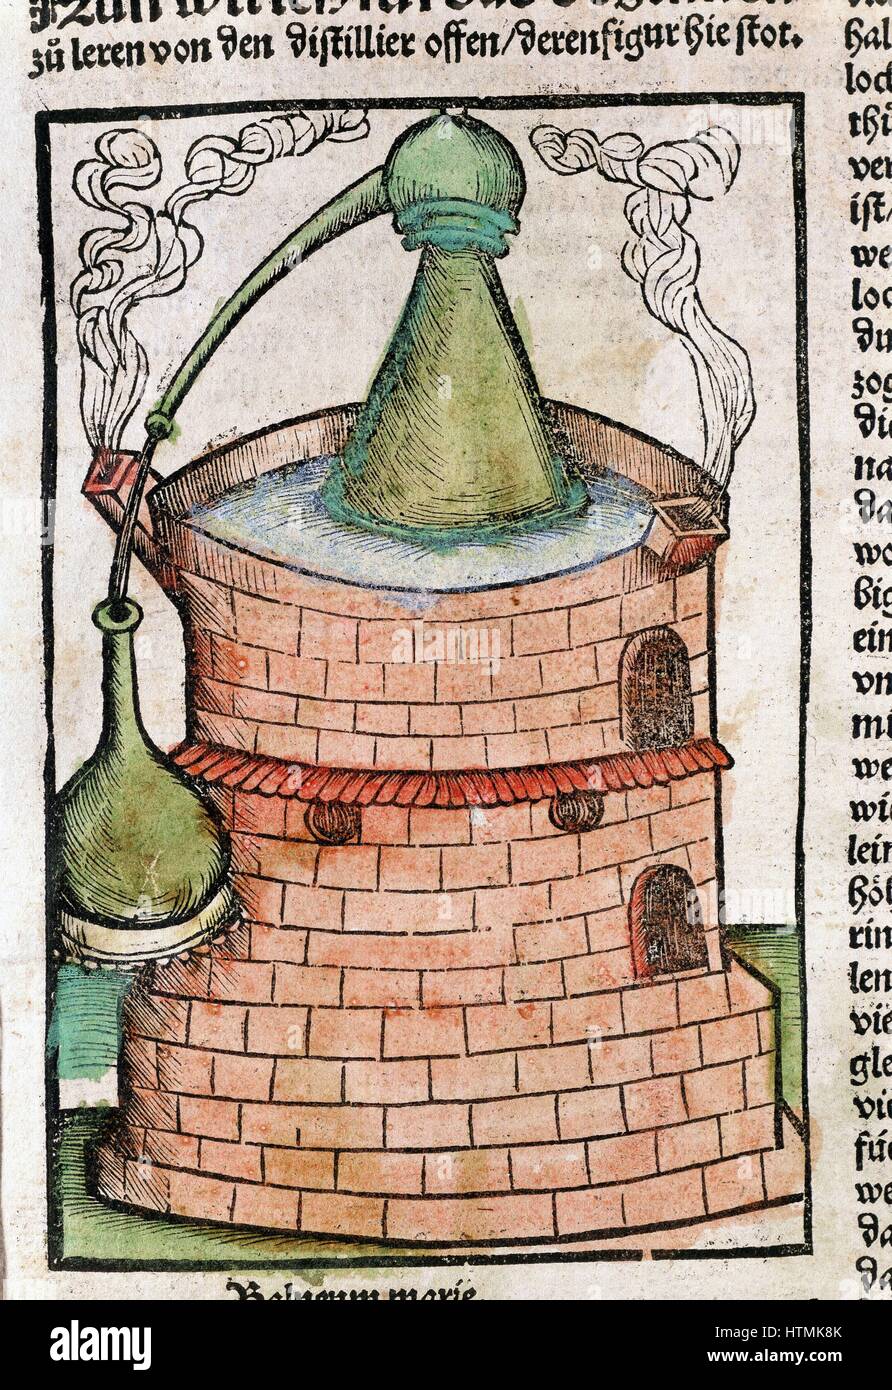 zů leren von den distillier offen/deren figur hie stot.
hal
lock
thi
ver
ist/
we
loc
du
zog
die
na
da
wo
big
ein
vn
mi
we
wi
lein
höl
rin
len
vie
gle
vie
fü
we
da
da
Balneum marie.
alamy
Image ID: HTMK8K
www.alamy.com